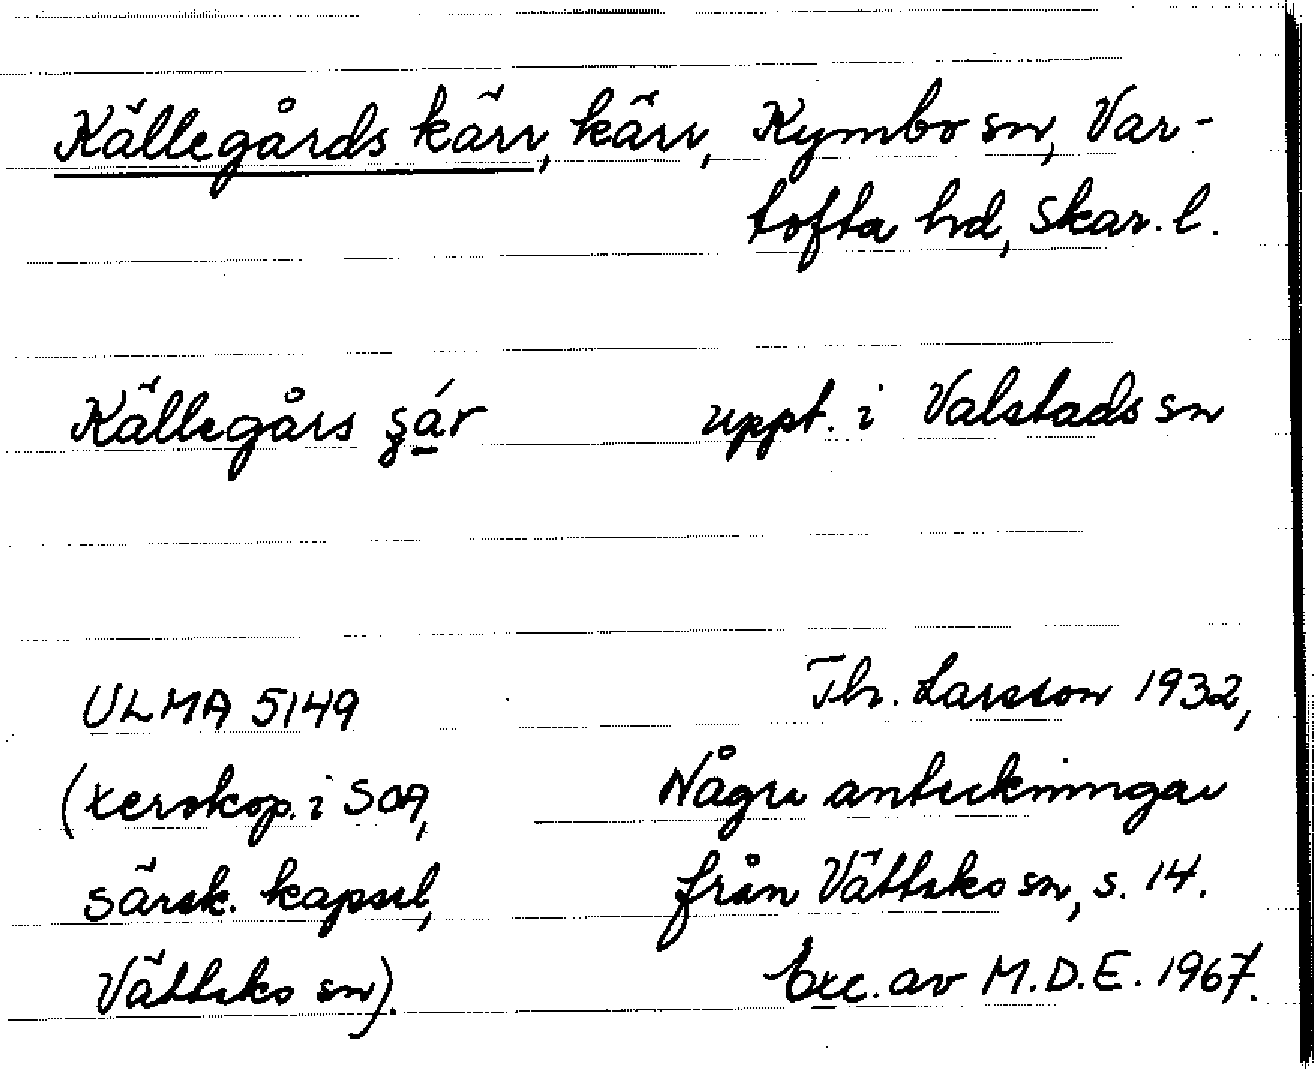 Källegårds kärr, kärr, Kymbo sn, Var-
tofta hd, Skar. l.
Källegårs
uppt. i Valstads sn
ULMA 5149
(xerokop. i SOA,
särsk. kapsel,
Vättaks sn).
Th. Larsson 1932,
Några anteckningar
från Vättaks sn, s. 14.
Exc. av M.D.E. 1967.